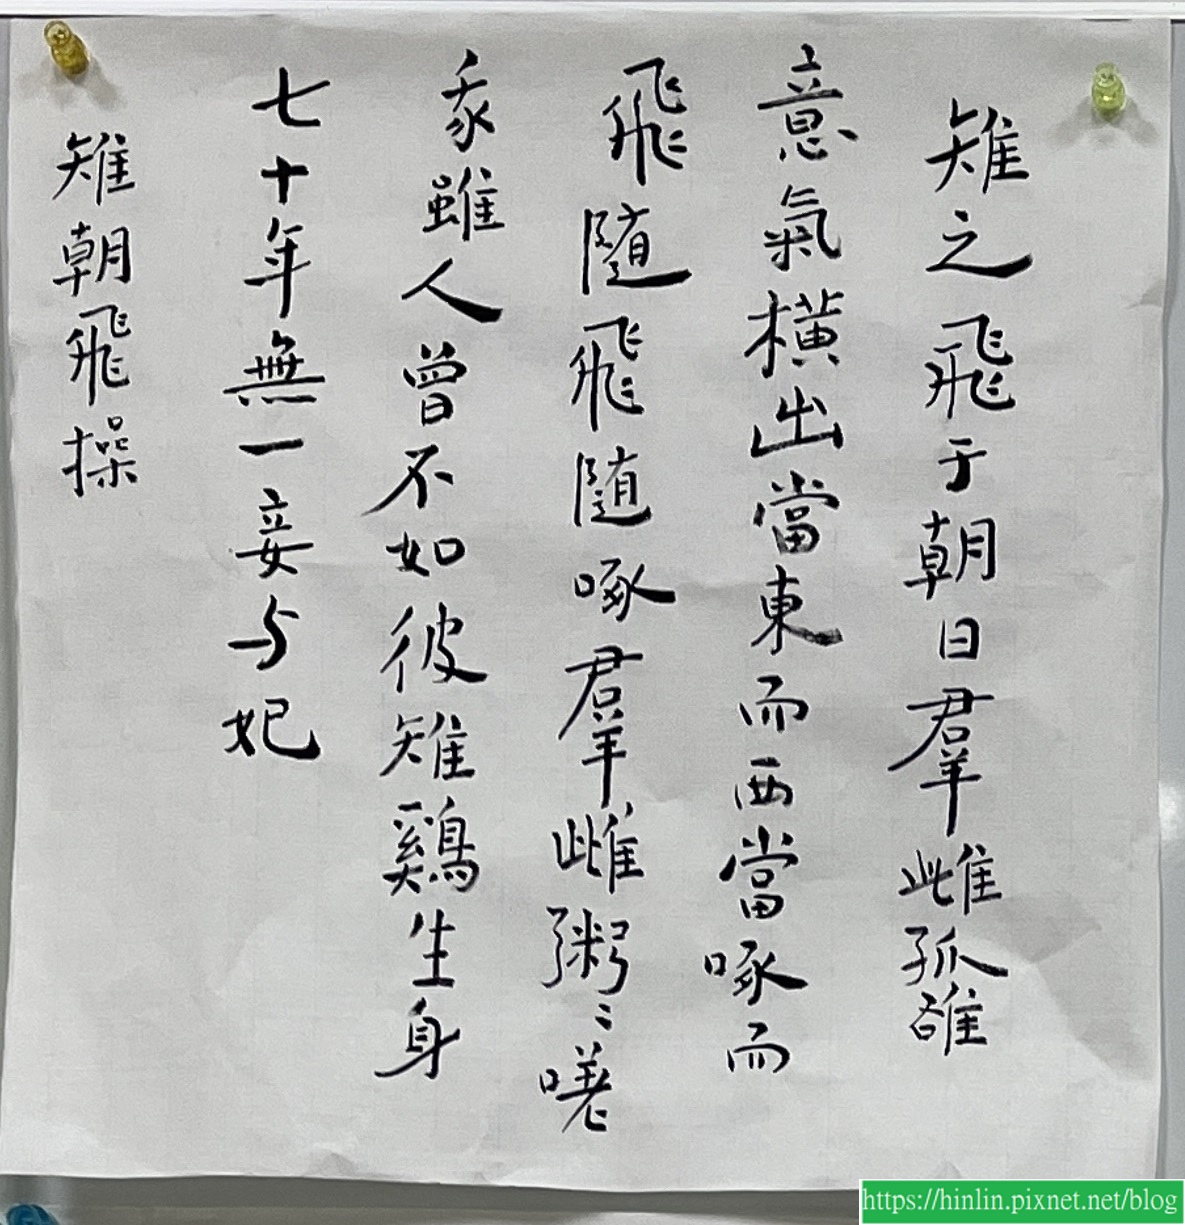 雉之飛于朝日羣雌孤雄
意氣橫出當東而西當啄而
飛隨飛隨啄羣雌粥〻嗟
我雖人曾不如彼雉鷄生身
七十年無一妾与妃
雉朝飛操
https://hinlin.pixnet.net/blog